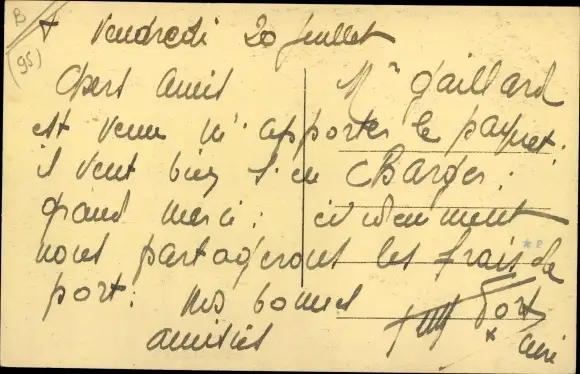 B
(95)
+ Vendredi 20 juillet
Chers Amis Mr Gaillard
est venu m'apporter le paquet.
il veut bien s'en charger.
grand merci: évidemment
nous partagerons les frais de
port. mes bonnes
amitiés